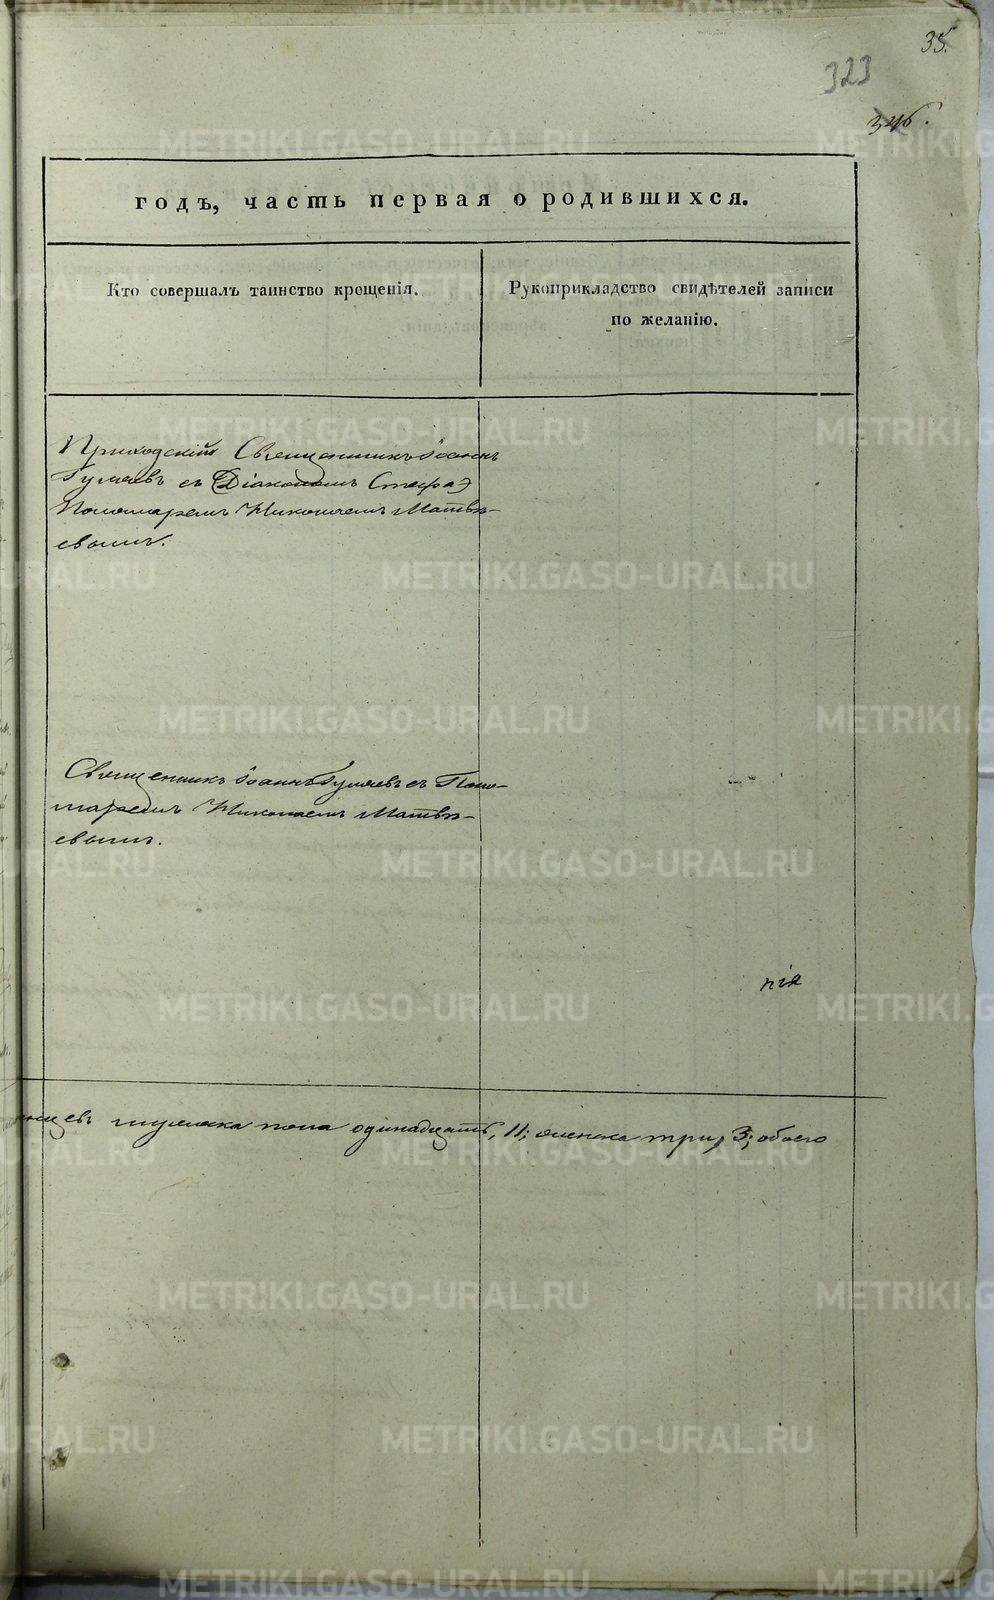 35.
323
346.
годъ, часть первая о родившихся.
Кто совершалъ таинство крещенія.
Рукоприкладство свидѣтелей записи
по желанію.
Приходскій Священникъ Іоаннъ
Гуляевъ съ Діакономъ Стефа
Пономаремъ Николаемъ Матвѣ-
евымъ.
Священникъ Іоаннъ Гуляевъ съ Поно-
маремъ Николаемъ Матвѣ-
евымъ.
нія
мужска пола одинадцать, 11; женска три, 3; обоего
METRIKI.GASO-URAL.RU